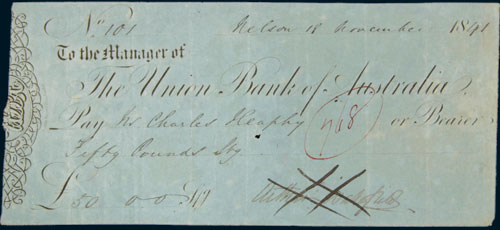 No 101 Nelson 18 November 1841
To the Manager of
The Union Bank of Australia.
Pay Mr Charles Heaphy or Bearer
768
Fifty Pounds Stg
£50 0 0 Stg